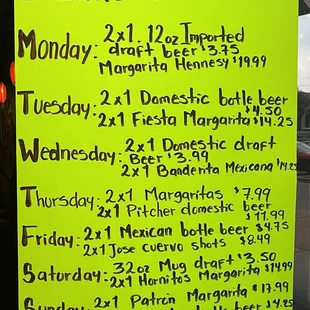 Monday: 2x1. 12oz Imported
draft beer $3.75
Margarita Hennesy $19.99
Tuesday: 2x1 Domestic botle beer
$4.50
2x1 Fiesta Margarita $14.25
Wednesday: 2x1 Domestic draft
Beer $3.99
2x1 Banderita Mexicana $14.25
Thursday: 2x1 Margaritas $7.99
2x1 Pitcher domestic beer
$11.99
Friday: 2x1 Mexican botle beer $4.75
2x1 Jose cuervo shots $8.49
Saturday: 32oz Mug draft $3.50
2x1 Hornitos Margarita $14.99
Sunday: 2x1 Patrón Margarita $17.99
botle beer $4.25